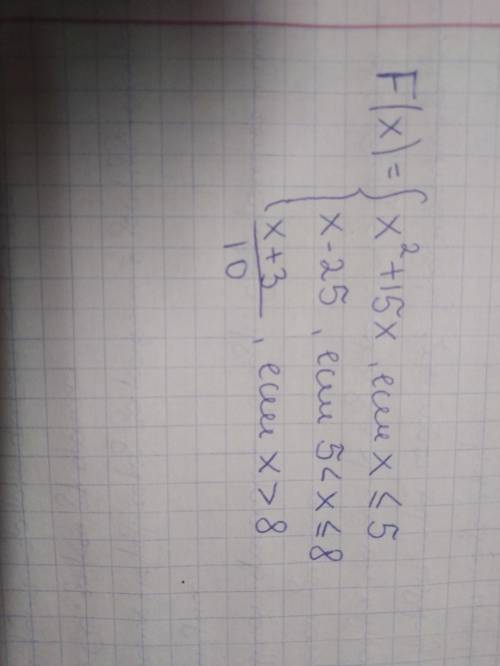 F(x) = { x² + 15x , если x ≤ 5
x - 25 , если 5 < x ≤ 8
x + 3
10
, если x > 8